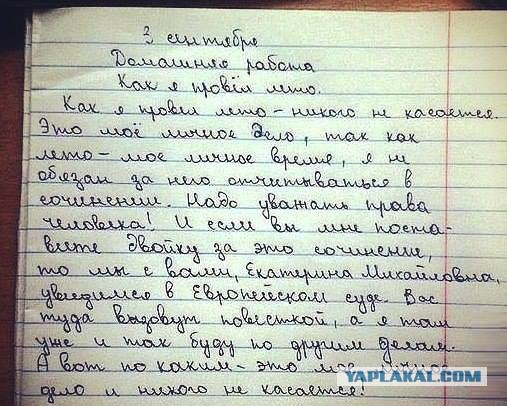 3 сентября
Домашняя работа
Как я провёл лето.
Как я провёл лето – никого не касается.
Это моё личное дело, так как
лето – мое личное время, я не
обязан за него отчитываться в
сочинении. Надо уважать права
человека! И если вы мне поста-
вите двойку за это сочинение,
то мы с вами, Екатерина Михайловна,
увидимся в Европейском суде. Вас
туда вызовут повесткой, а я там
уже и так буду по другим делам.
А вот по каким – это мое
дело и никого не касается!
YAPLAKAL.COM